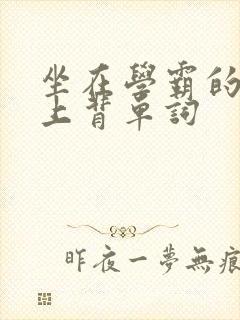 坐在學霸的
上背單詞
昨夜一夢無痕